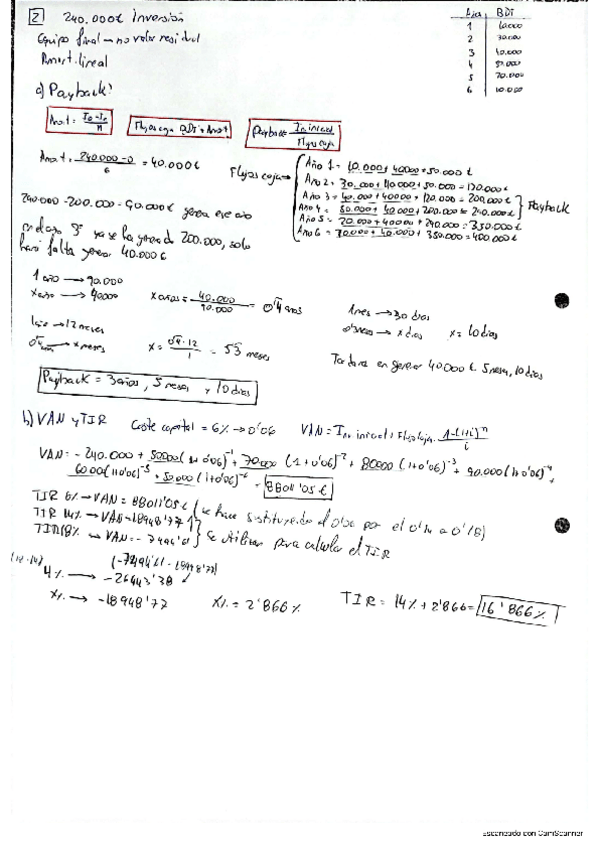 2 240.000€ Inversión
Equipo final → no valor residual
Amort. lineal
Año BDI
1 10.000
2 30.000
3 40.000
4 50.000
5
6 10.000
a) Payback:
Amort =
Flujos caja = BDI + Amort
Payback = In. inicial / Flujos caja
Amort = 240000-0 / 6 = 40.000€
Flujos caja →
Año 1 = 10.000 + 40000 = 50.000€
Año 2 = 30.000 + 40.000 + 50.000 = 120.000€
Año 3 = 40.000 + 40000 + 120.000 = 200.000€
Año 4 = 50.000 + 40.000 + 200.000 = 240.000€
Año 5 = 20.000 + 40000 + 240.000 = 350.000€
Año 6 = 10.000 + 40.000 + 350.000 = 400.000€
Payback
240.000 - 200.000 - 90.000€ genera ese año
en el año 3º ya se ha generado 200.000, solo
hará falta generar 40.000€
1 año → 90.000
x año → 40000
x años = 40.000 / 90.000 = 0'4 años
1 mes → 30 días
→ x días x = 10 días
1 año → 12 meses
0'4 → x meses
x = 0'4·12 / 1 = 5'3 meses
Tardara en generar 40000€ 5 meses, 10 días
Payback = 3 años, 5 meses y 10 días
b) VAN y TIR Coste capital = 6% → 0'06 VAN = In. inicial + Flujo caja · 1-(1+i)^n / i
VAN = - 240.000 + 50000 (1+0'06)^-1 + 70.000 (1+0'06)^-2 + 80000 (1+0'06)^-3 + 90.000 (1+0'06)^-4 +
60.000 (1+0'06)^-5 + 50.000 (1+0'06)^-6 = 88011'05€
TIR 6% → VAN = 88011'05€ (se hace sustituyendo el 0'06 por el 0'14 a 0'18)
TIR 14% → VAN = 18948'77
TIR 18% → VAN = -7494'61
se utilizan para calcular el TIR
(-7494'61 - 18948'77)
4% → -26443'38
x% → -18948'77 x% = 2'866%
TIR = 14% + 2'866 = 16'866%
Escaneado con CamScanner